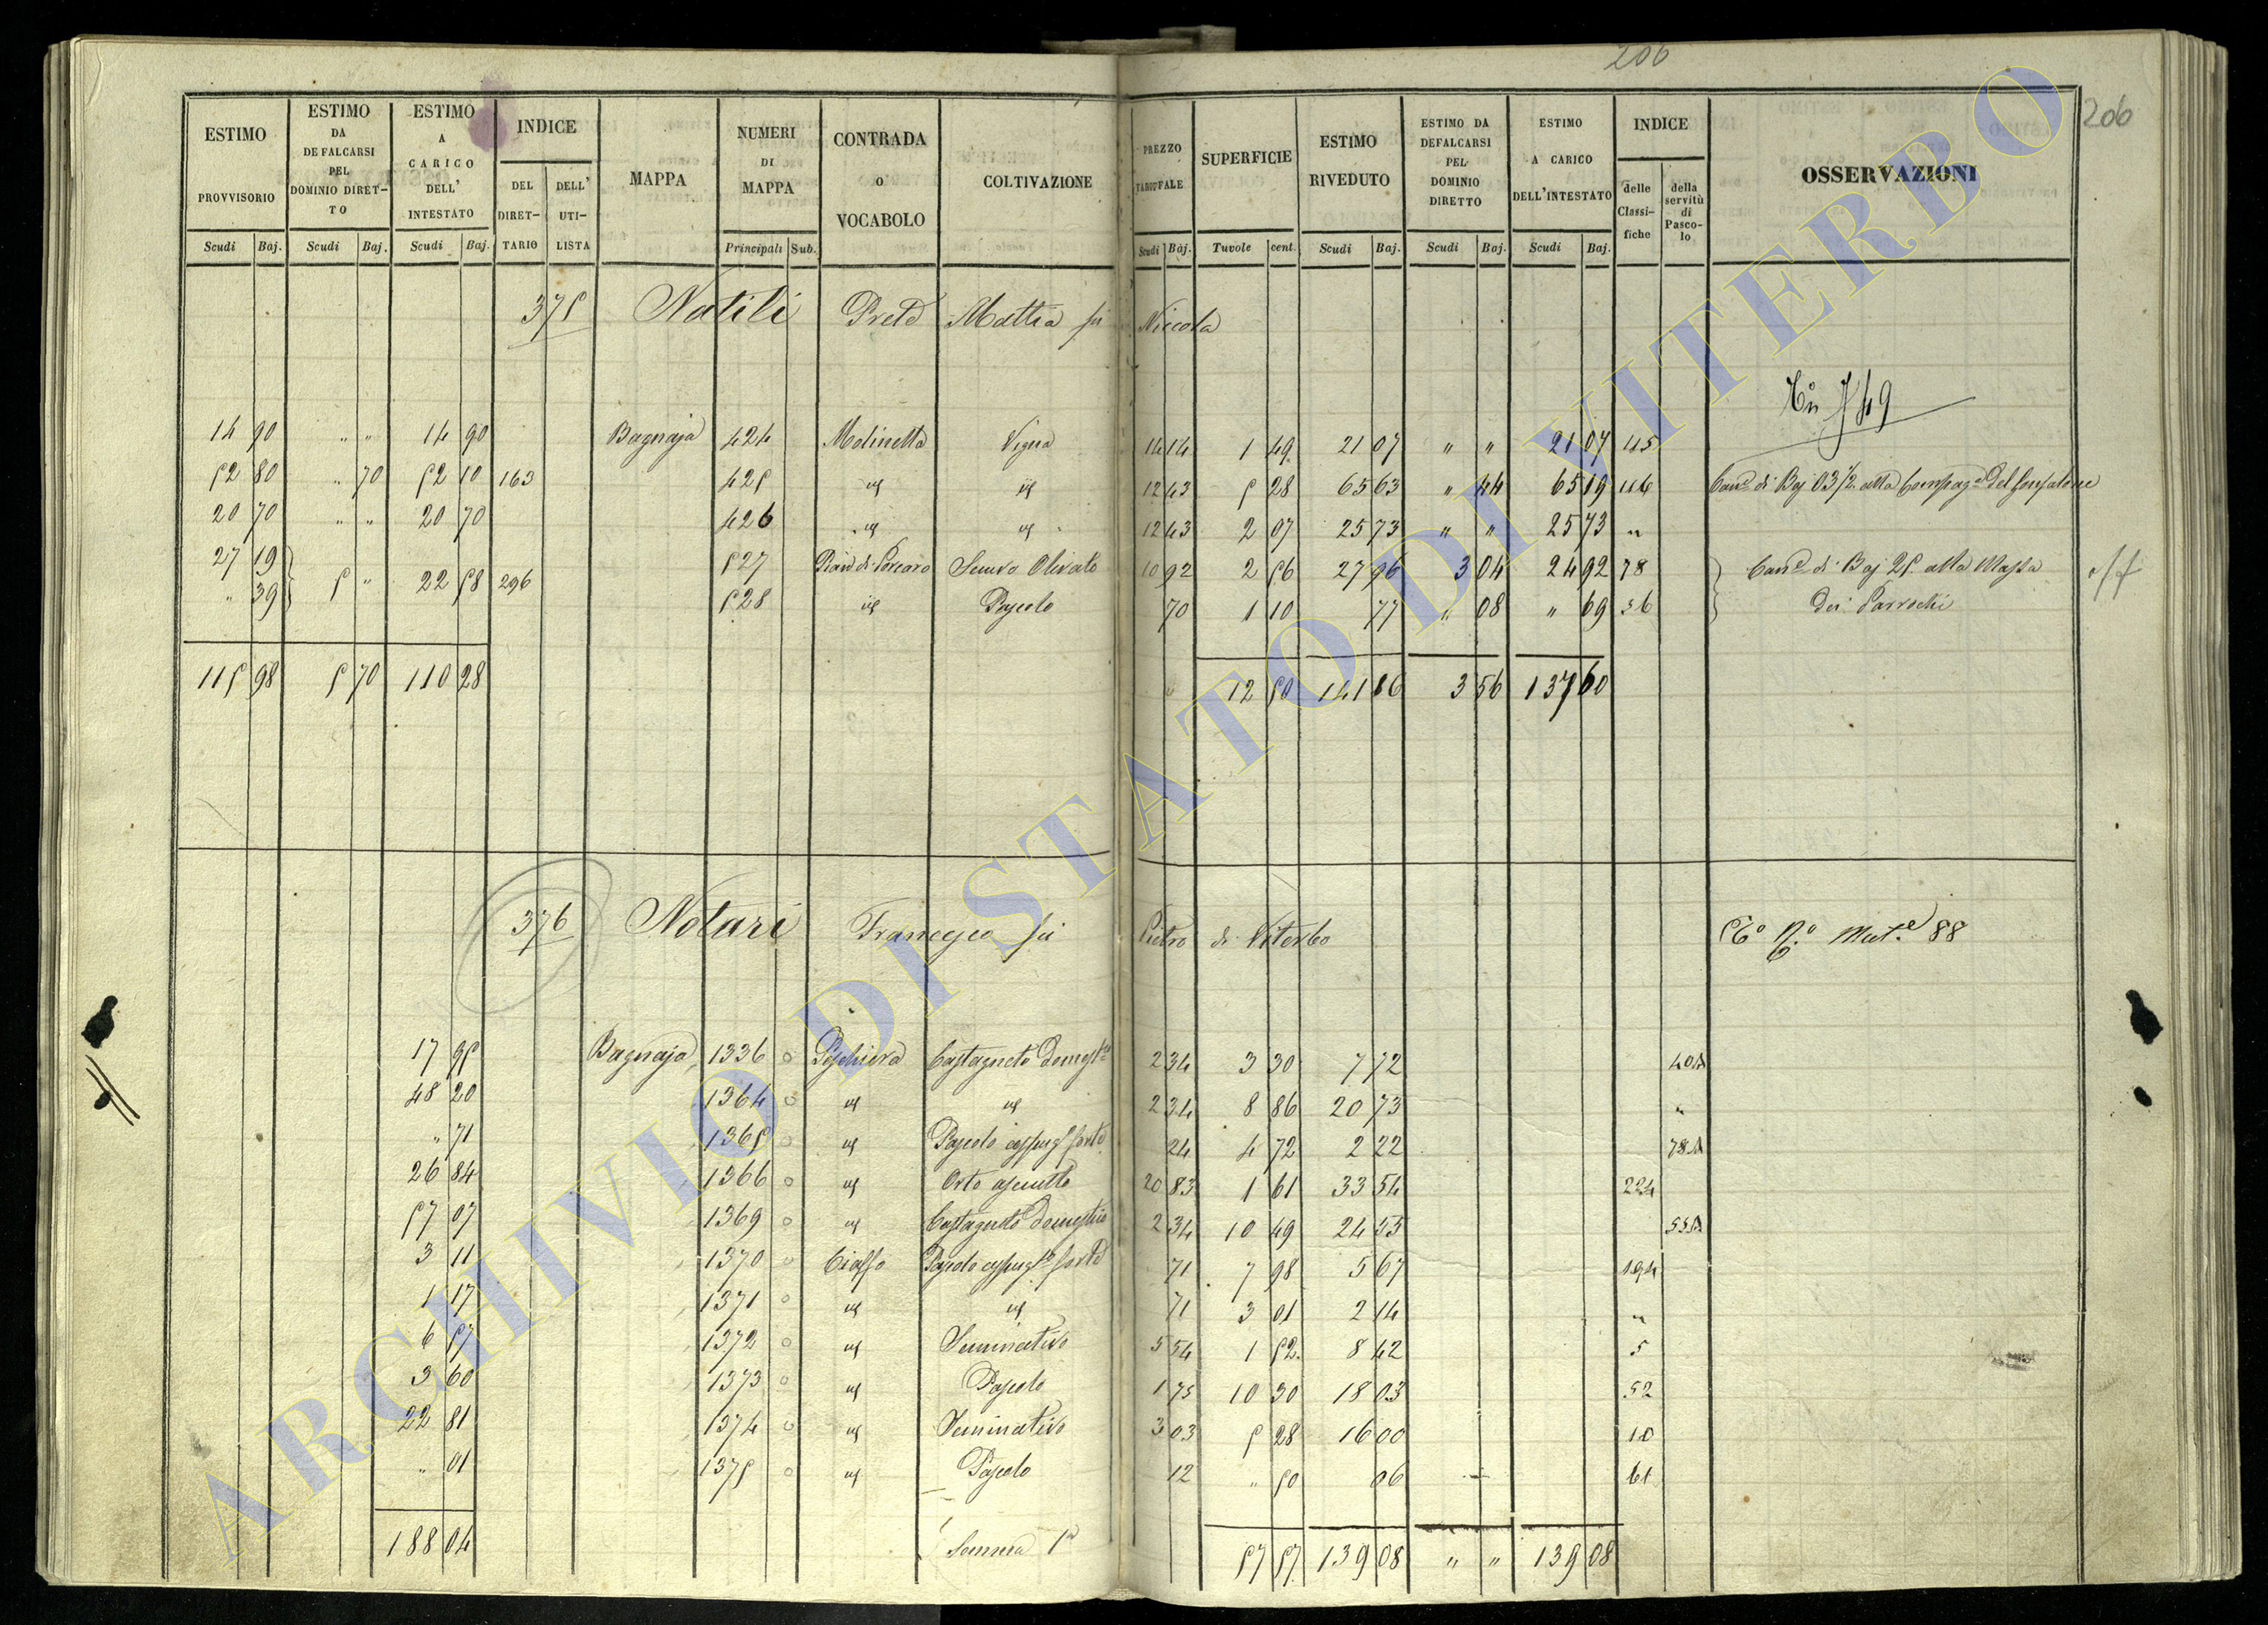 206
206
ESTIMO PROVVISORIO ESTIMO DA DEFALCARSI PEL DOMINIO DIRETTO ESTIMO A CARICO DELL' INTESTATO INDICE DEL DIRETTARIO DELL' UTILISTA MAPPA NUMERI DI MAPPA CONTRADA O VOCABOLO COLTIVAZIONE PREZZO TARIFFALE SUPERFICIE ESTIMO RIVEDUTO ESTIMO DA DEFALCARSI PEL DOMINIO DIRETTO ESTIMO A CARICO DELL'INTESTATO INDICE delle Classifiche della servitù di Pascolo OSSERVAZIONI
Scudi Baj. Scudi Baj. Scudi Baj. Principali Sub. Scudi Baj. Tavole cent. Scudi Baj. Scudi Baj. Scudi Baj.
375 Natili Prete Mattia fu Niccola
14 90 " " 14 90 Bagnaja 424 Molinella Vigna 14 14 1 49 21 07 " " 21 07 45
52 80 " 70 52 10 163 425 id id 12 43 5 28 65 63 " 44 65 19 46 Can.e di Baj 03 1/2 alla Compag.a del Gonfalone
20 70 " " 20 70 426 id id 12 43 2 07 25 73 " " 25 73 "
27 19 5 " 22 58 296 527 Piano di Porcaro Semvo Olivato 10 92 2 56 27 96 3 04 24 92 78 Can.e di Baj 25 alla Massa
" 39 528 id Pascolo 70 1 10 77 " 08 " 69 56 dei Parrochi
115 98 5 70 110 28 12 50 141 16 3 56 137 60
376 Notari Francesco fu Pietro di Viterbo 88
17 95 Bagnaja 1336 Peschiera Castagneto domest.co 2 34 3 30 7 72 40A
48 20 1364 id id 2 34 8 86 20 73 "
" 71 1365 id Pascolo cespug.o forte 24 4 72 2 22 78A
26 84 1366 id Orto asciutto 20 83 1 61 33 54 224
57 07 1369 id Castagneto domestico 2 34 10 49 24 55 55A
3 11 1370 Ciaffo Pascolo cespug.o forte 71 7 98 5 67 194
1 17 1371 id id 71 3 01 2 14 "
6 57 1372 id Seminativo 5 54 1 52 8 42 5
3 60 1373 id Pascolo 1 75 10 30 18 03 52
22 81 1374 id Seminativo 3 03 5 28 16 00 10
" 01 1375 id Pascolo 12 " 50 06 61
188 04 Somma 57 57 139 08 " " 139 08
ARCHIVIO DI STATO DI VITERBO